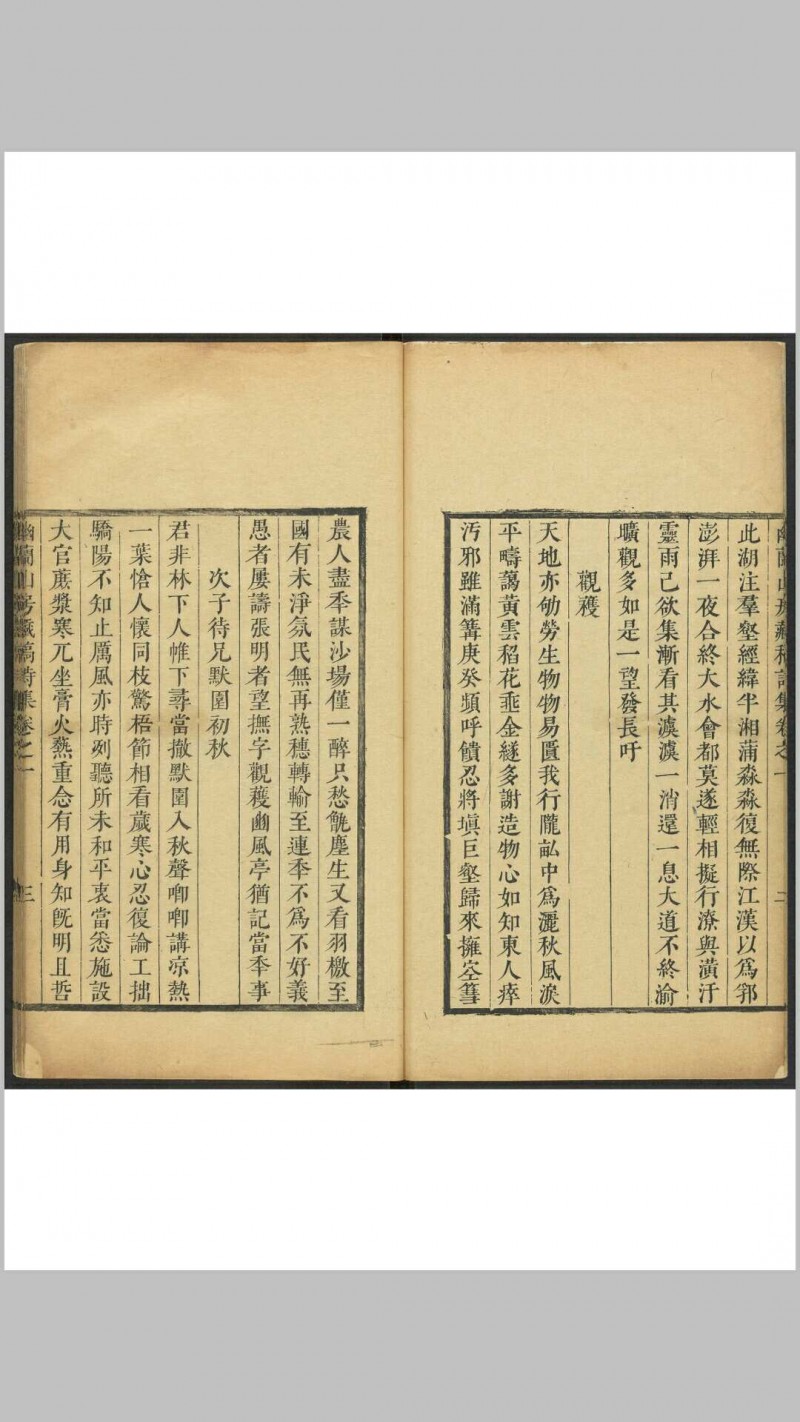 此湖注羣壑經緯半湘蒲淼淼復無際江漢以為邾
澎湃一夜合終大水會都莫遂輕相擬行潦與潢汙
靈雨已欲集漸看其濊濊一消還一息大道不終渝
曠觀多如是一望發長吁
觀穫
天地亦劬勞生物物易匱我行隴畝中為灑秋風淚
平疇藹黃雲稻花乖金繸多謝造物心如知東人瘁
汚邪雖滿篝庚癸頻呼饋忍將填巨壑歸來擁空篲
農人盡秊謀沙場僅一醉只愁甑塵生又看羽檄至
國有未淨氛民無再熟穗轉輸至連秊不為不好義
愚者屢譸張明者望撫字觀穫豳風亭猶記當秊事
次子待兄默園初秋
君非林下人帷下尋當撤默園入秋聲啣啣講凉熱
一葉愴人懷同枝驚梧節相看歲寒心忍復論工拙
驕陽不知止厲風亦時列聽所未和平衷當悉施設
大官蔗漿寒兀坐膏火爇重念有用身知旣明且哲
幽蘭山房藏稿詩集卷之一 三